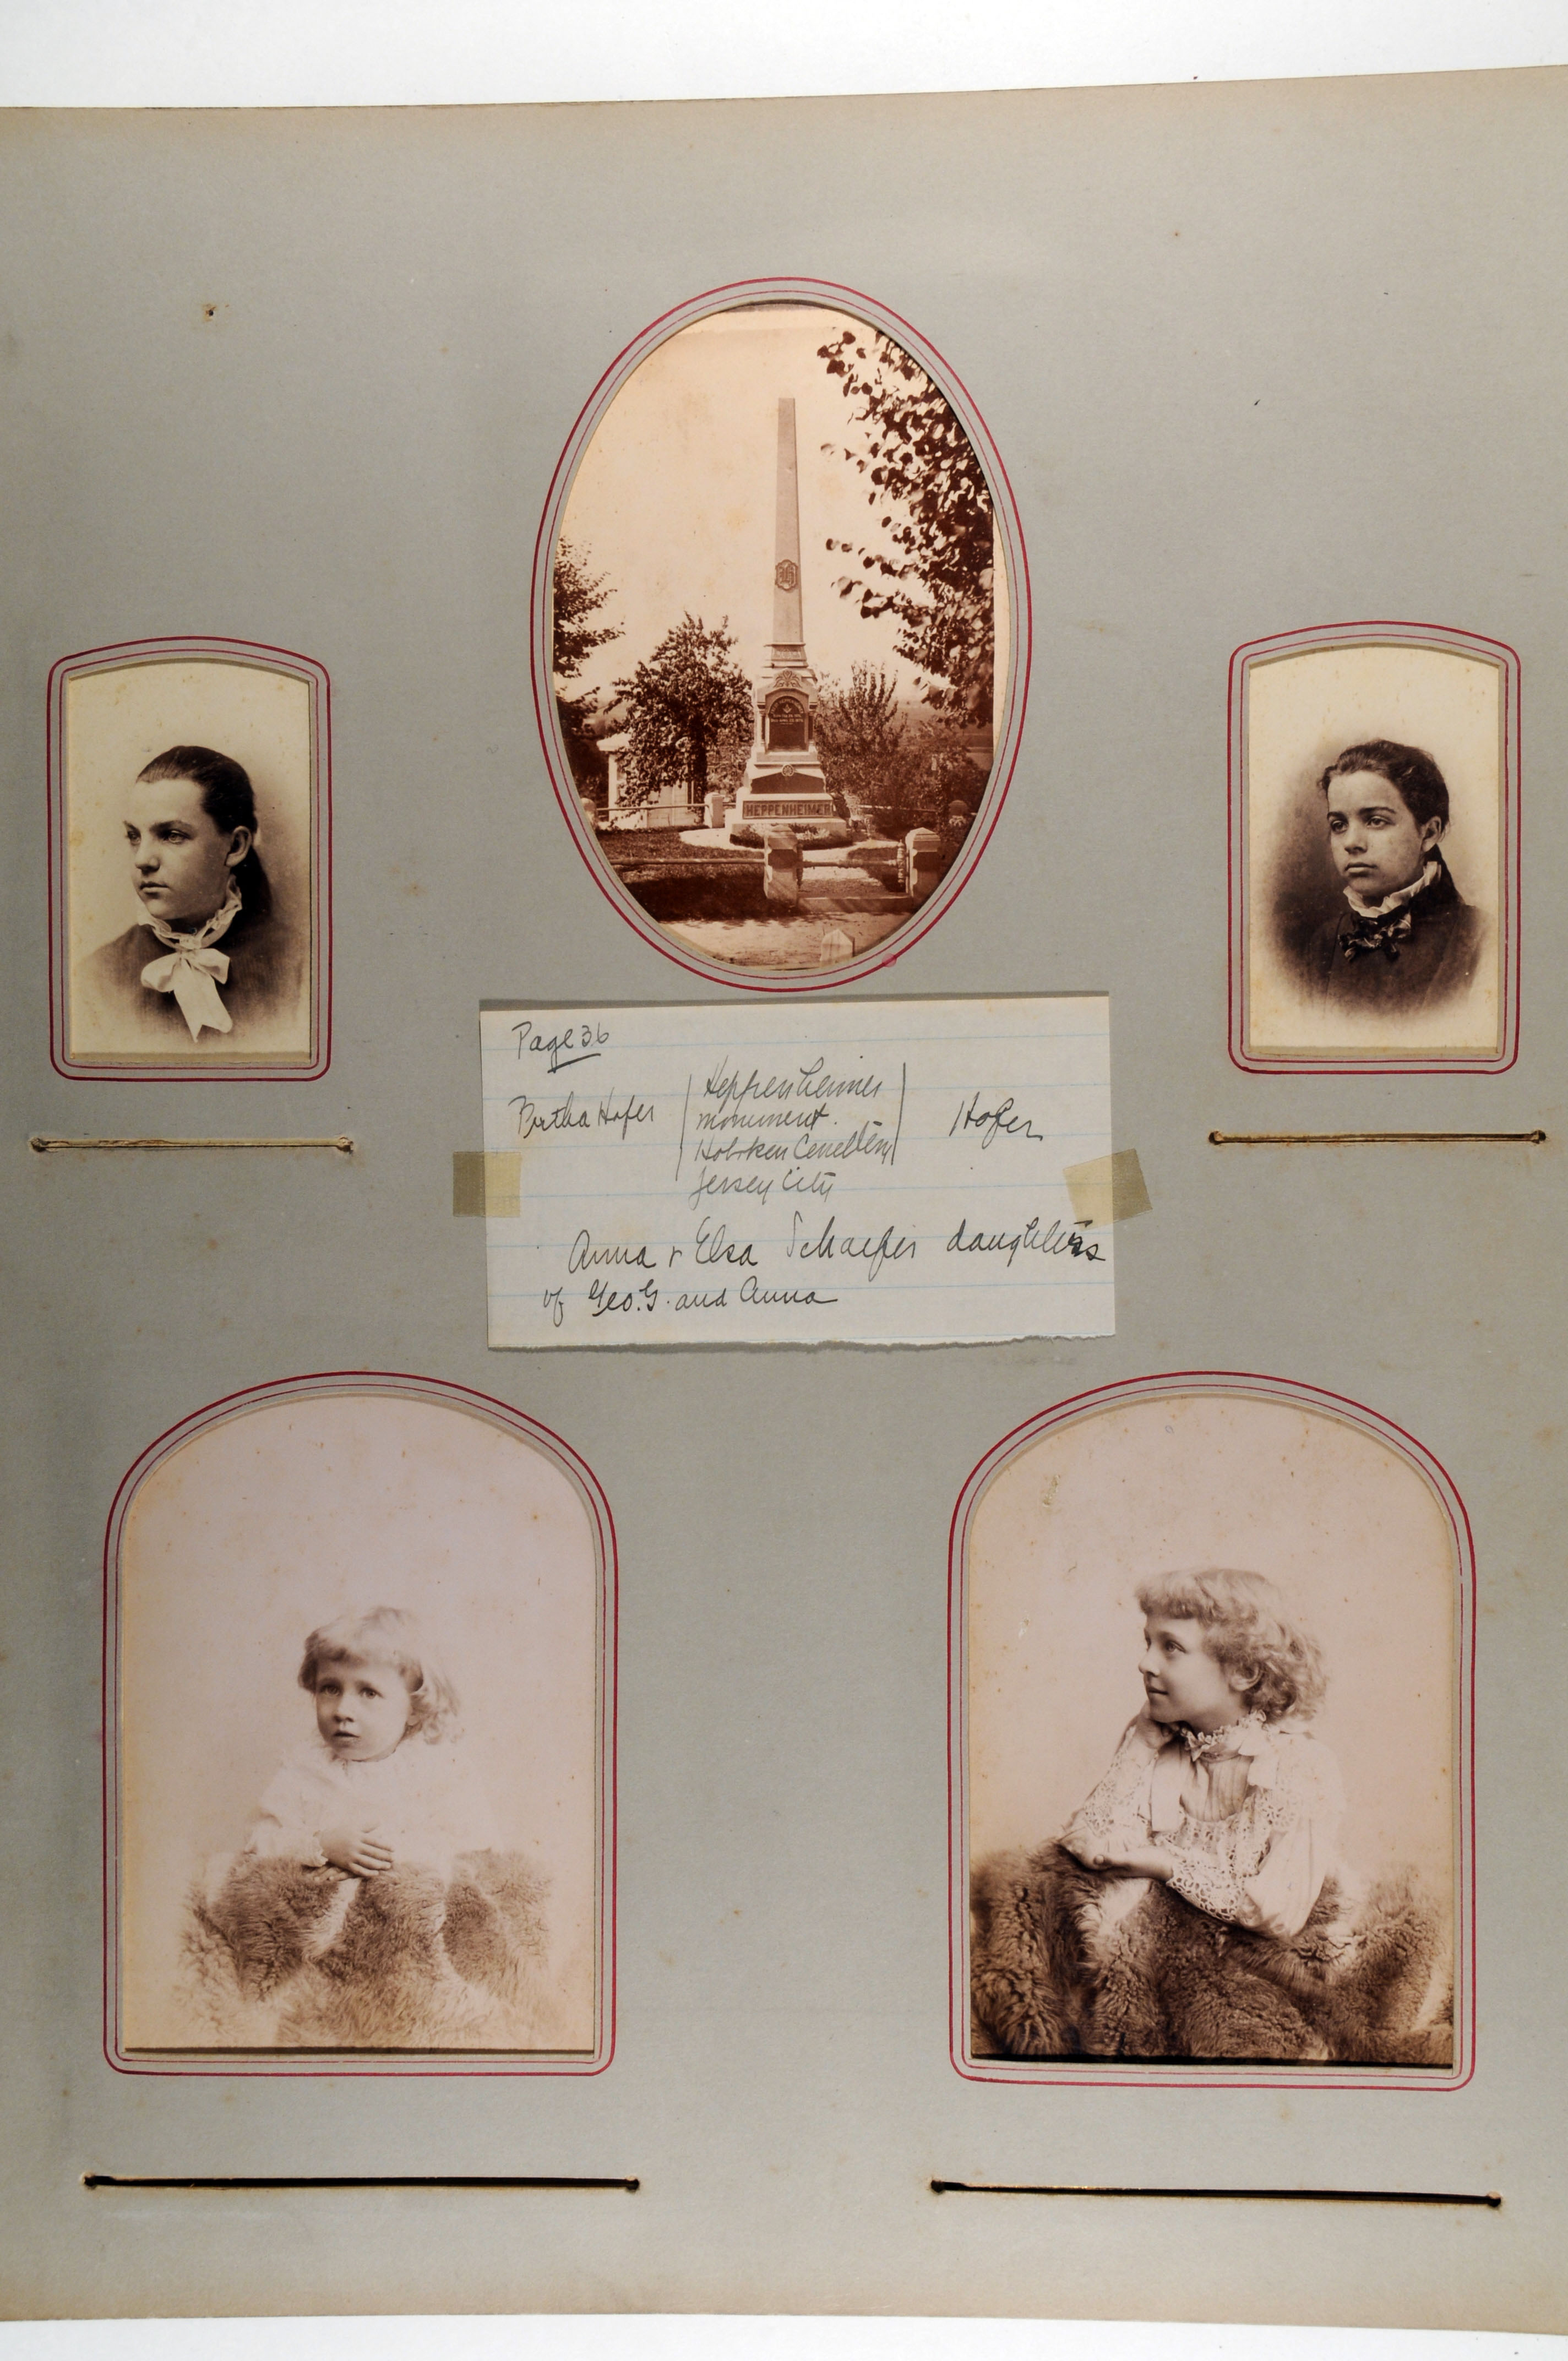 H
HEPPENHEIMER
Page 36
Bertha Hofer
Heppenheimer
monument.
Hoboken Cemetery
Jersey City
Hofer
Anna + Elsa Schaefer daughters
of Geo. G. and Anna